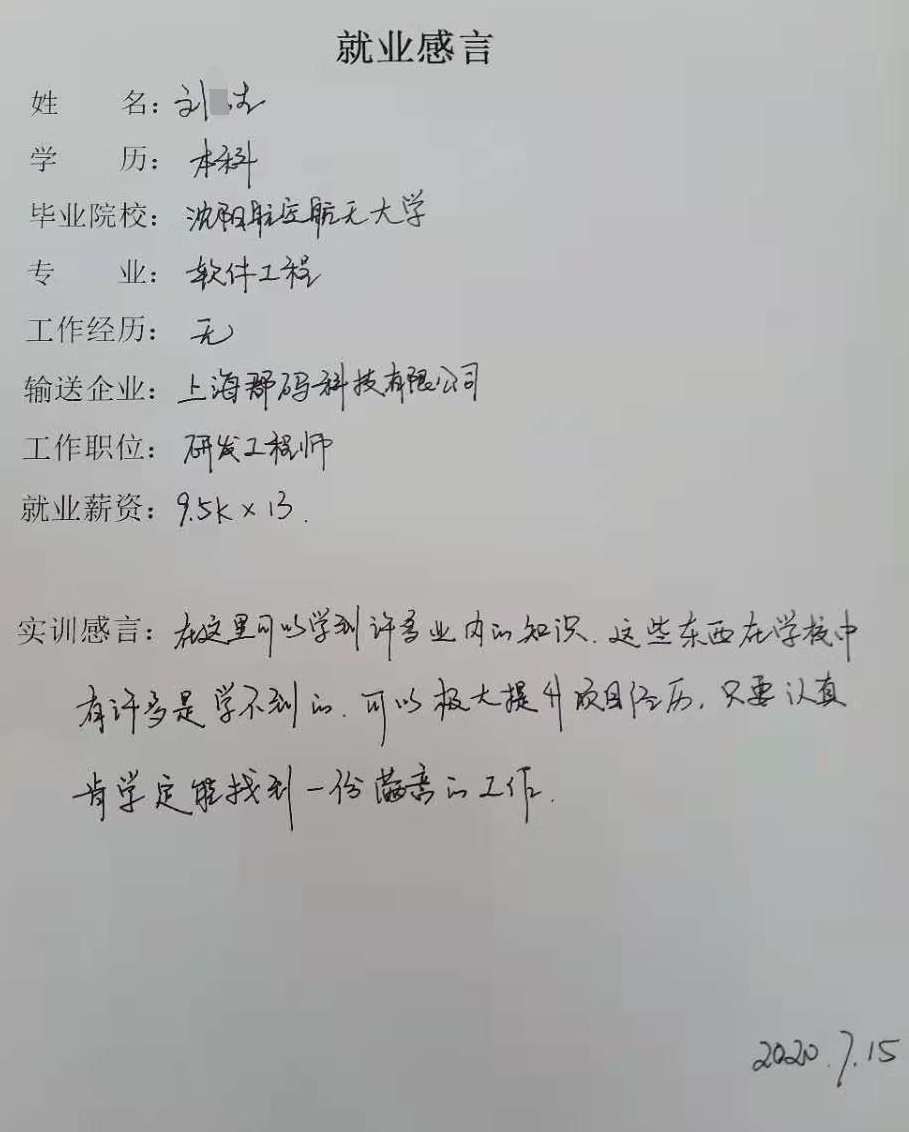 就业感言
姓 名：刘
学 历：本科
毕业院校：沈阳航空航天大学
专 业：软件工程
工作经历：无
输送企业：上海郡码科技有限公司
工作职位：研发工程师
就业薪资：9.5K×13.
实训感言：在这里可以学到许多业内的知识.这些东西在学校中
有许多是学不到的.可以极大提升项目经历.只要认真
肯学定能找到一份满意的工作.
2020.7.15